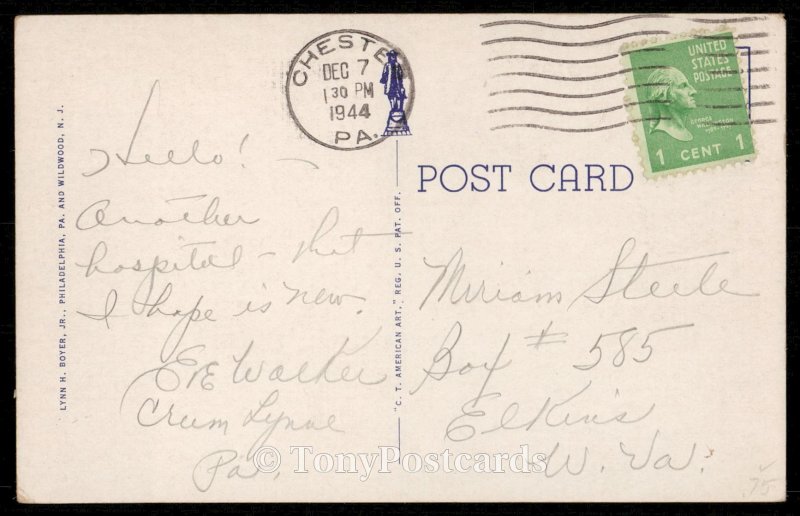 CHESTER
DEC 7
1 30 PM
1944
PA.
UNITED
STATES
POSTAGE
GEORGE
WASHINGTON
1789-1797
1 CENT 1
POST CARD
LYNN H. BOYER, JR., PHILADELPHIA, PA. AND WILDWOOD, N. J.
"C. T. AMERICAN ART," REG. U. S. PAT. OFF.
Hello! -
Another
hospital - that
I hope is new.
Eve Walker
Crum Lynne
Pa.
Miriam Steele
Box # 585
Elkins
W. Va.
© TonyPostcards
.75